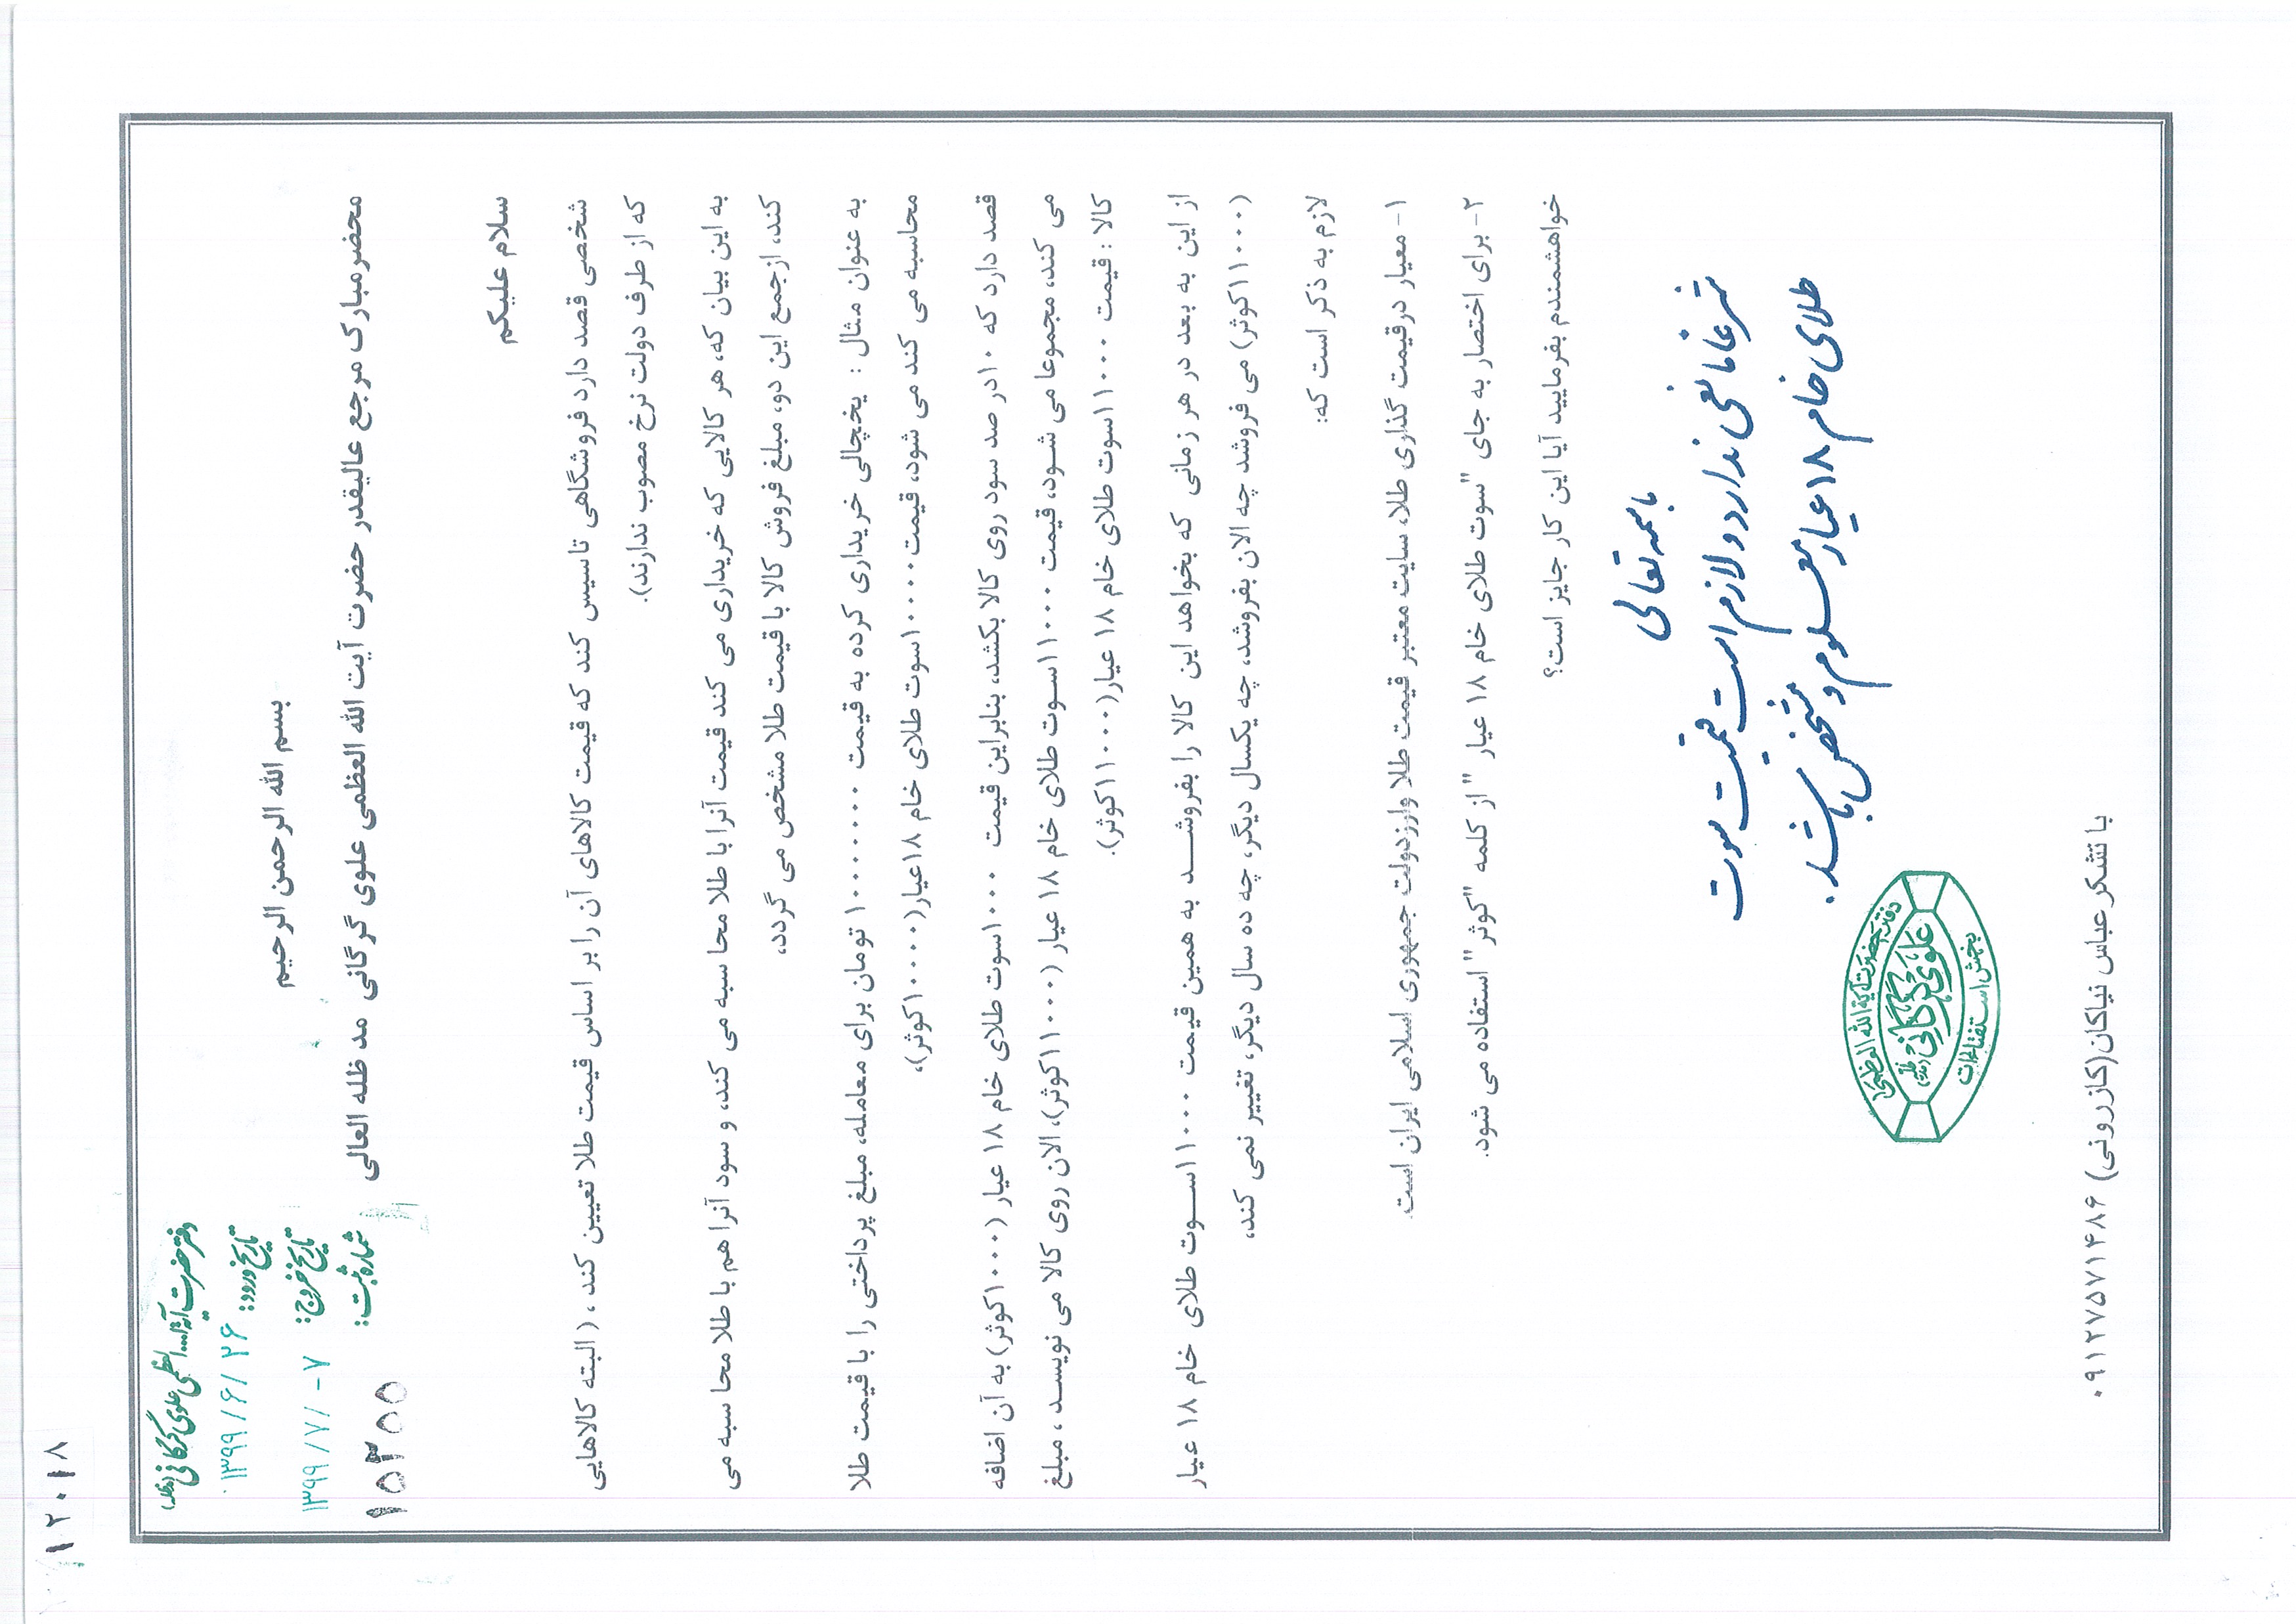 ۱۲۰۱۸
دفتر حضرت آیة ا... العظمی علوی گرگانی (مدظله)
تاریخ ورود: ۱۳۹۹/۶/۲۶
تاریخ خروج: ۱۳۹۹/۷/۰۷
شماره ثبت: ۱۵۳۵۵
بسم الله الرحمن الرحیم
محضر مبارک مرجع عالیقدر حضرت آیت الله العظمی علوی گرگانی مد ظله العالی
سلام علیکم
شخصی قصد دارد فروشگاهی تاسیس کند که قیمت کالاهای آن را بر اساس قیمت طلا تعیین کند، (البته کالاهایی
که از طرف دولت نرخ مصوب ندارند).
به این بیان که، هر کالایی که خریداری می کند قیمت آنرا با طلا محاسبه می کند، و سود آنرا هم با طلا محاسبه می
کند، ازجمع این دو، مبلغ فروش کالا با قیمت طلا مشخص می گردد،
به عنوان مثال : یخچالی خریداری کرده به قیمت ۱۰۰۰۰۰۰۰ تومان برای معامله، مبلغ پرداختی را با قیمت طلا
محاسبه می کند می شود، قیمت ۱۰۰۰۰سوت طلای خام ۱۸عیار(۱۰۰۰۰کوثر)،
قصد دارد که ۱۰در صد سود روی کالا بکشد، بنابراین قیمت ۱۰۰۰سوت طلای خام ۱۸ عیار (۱۰۰۰کوثر) به آن اضافه
می کند، مجموعا می شود، قیمت ۱۱۰۰۰سوت طلای خام ۱۸ عیار (۱۱۰۰۰کوثر)، الان روی کالا می نویسد، مبلغ
کالا : قیمت ۱۱۰۰۰سوت طلای خام ۱۸ عیار(۱۱۰۰۰کوثر).
از این به بعد در هر زمانی که بخواهد این کالا را بفروشد به همین قیمت ۱۱۰۰۰سوت طلای خام ۱۸ عیار
(۱۱۰۰۰کوثر) می فروشد چه الان بفروشد، چه یکسال دیگر، چه ده سال دیگر، تغییر نمی کند،
لازم به ذکر است که:
۱- معیار درقیمت گذاری طلا، سایت معتبر قیمت طلا وارزدولت جمهوری اسلامی ایران است.
۲- برای اختصار به جای "سوت طلای خام ۱۸ عیار" از کلمه "کوثر" استفاده می شود.
خواهشمندم بفرمایید آیا این کار جایز است؟
باسمه تعالی
شرعا مانعی ندارد و لازم است قیمت سوت
طلای خام ۱۸ عیار معلوم و مشخص باشد.
دفتر حضرت آیة الله العظمی
علوی گرگانی مدظله
بخش استفتاءات
با تشکر عباس نیاکان(کازرونی) ۰۹۱۲۷۵۷۱۴۸۶